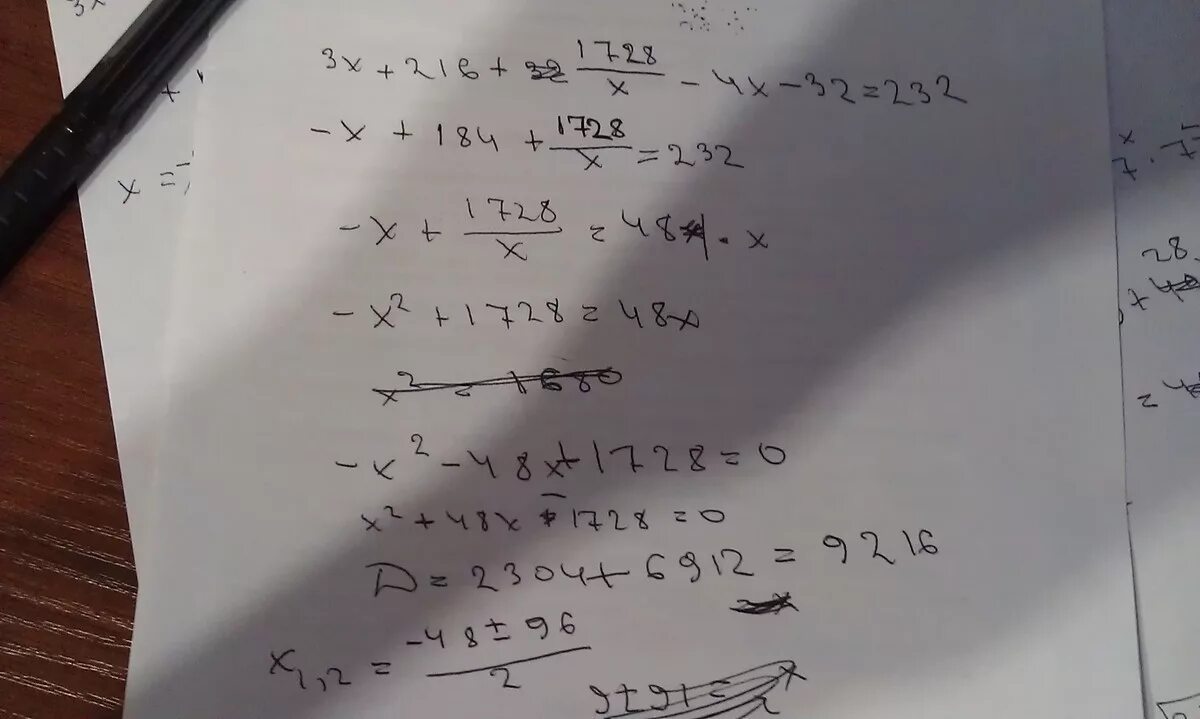 3x + 216 + 1728/x - 4x - 32 = 232
-x + 184 + 1728/x = 232
-x + 1728/x = 48 | · x
-x² + 1728 = 48x
x² = 1680
-x² - 48x + 1728 = 0
x² + 48x - 1728 = 0
D = 2304 + 6912 = 9216
x₁,₂ = (-48 ± 96)/2
x =
28